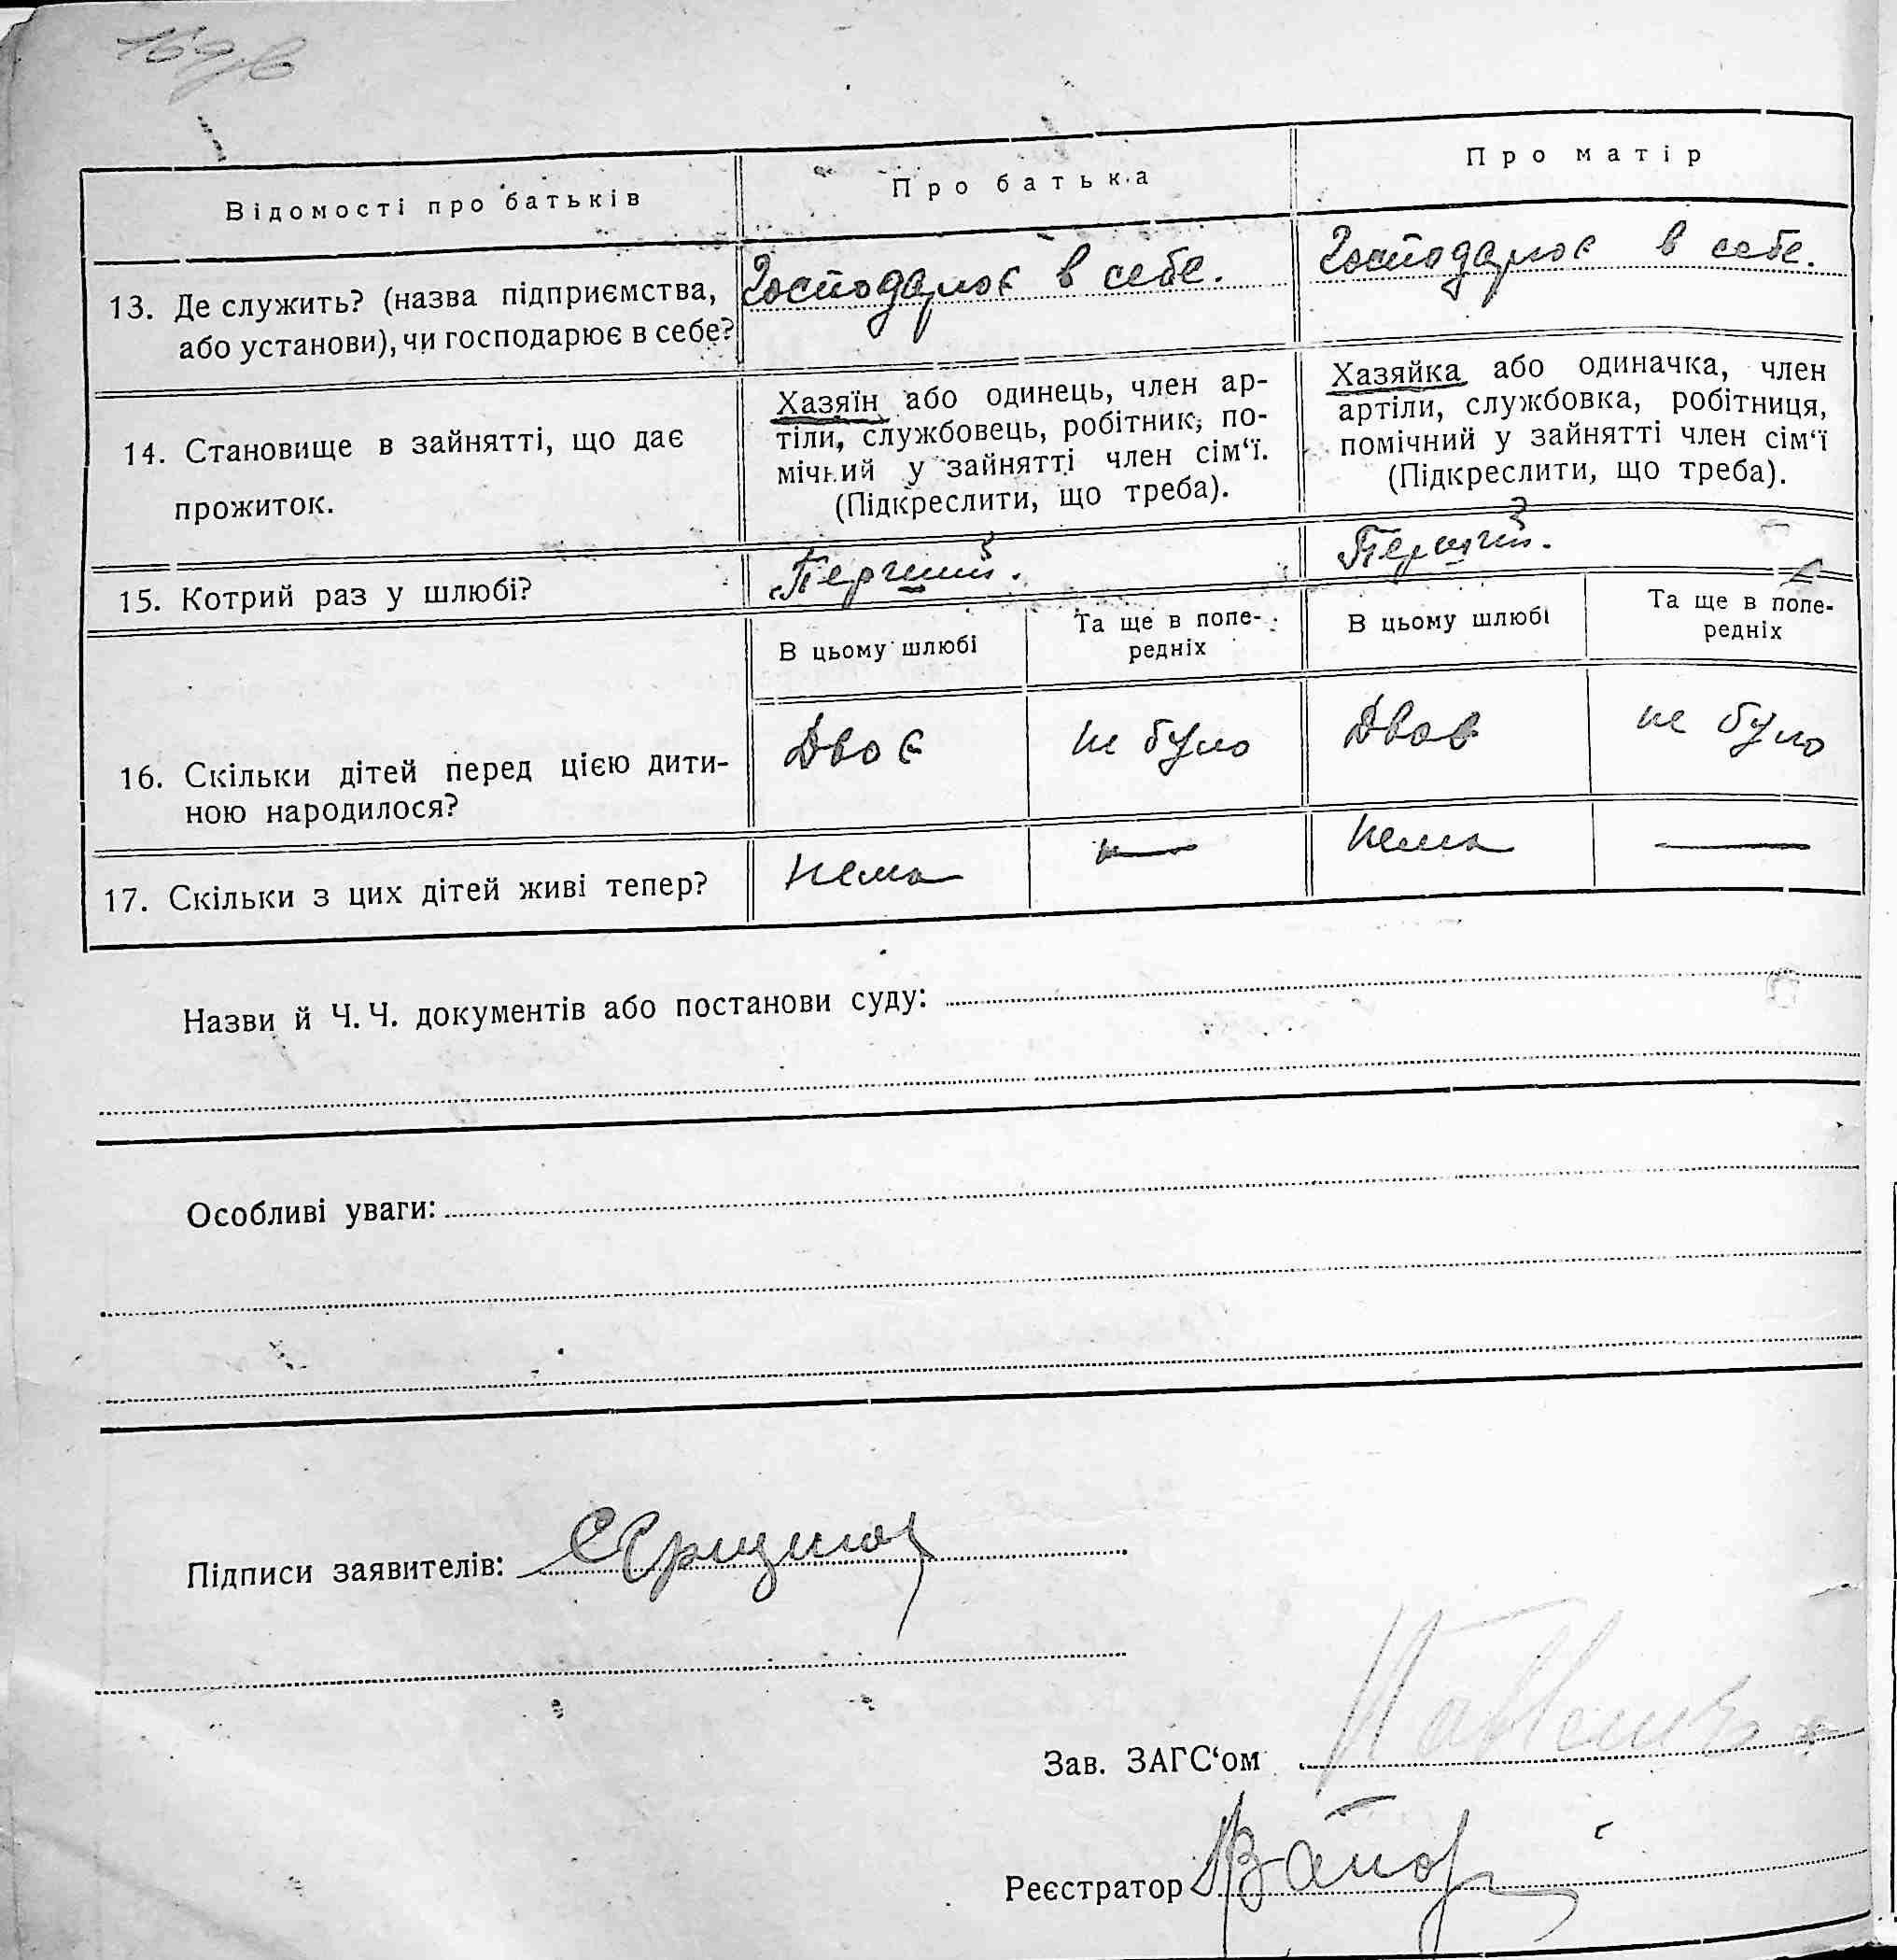 Відомості про батьків
Про батька
Про матір
13. Де служить? (назва підприємства,
або установи), чи господарює в себе?
Господарює в себе.
Господарює в себе.
14. Становище в зайнятті, що дає
прожиток.
Хазяїн або одинець, член ар-
тіли, службовець, робітник, по-
мічний у зайнятті член сім‘ї.
(Підкреслити, що треба).
Хазяйка або одиначка, член
артіли, службовка, робітниця,
помічний у зайнятті член сім‘ї
(Підкреслити, що треба).
15. Котрий раз у шлюбі?
Перший.
Перший.
В цьому шлюбі
Та ще в попе-
редніх
В цьому шлюбі
Та ще в попе-
редніх
16. Скільки дітей перед цією дити-
ною народилося?
Двоє
не було
Двоє
не було
17. Скільки з цих дітей живі тепер?
нема
нема
Назви й Ч. Ч. документів або постанови суду:
Особливі уваги:
Підписи заявителів:
Зав. ЗАГС‘ом
Реєстратор